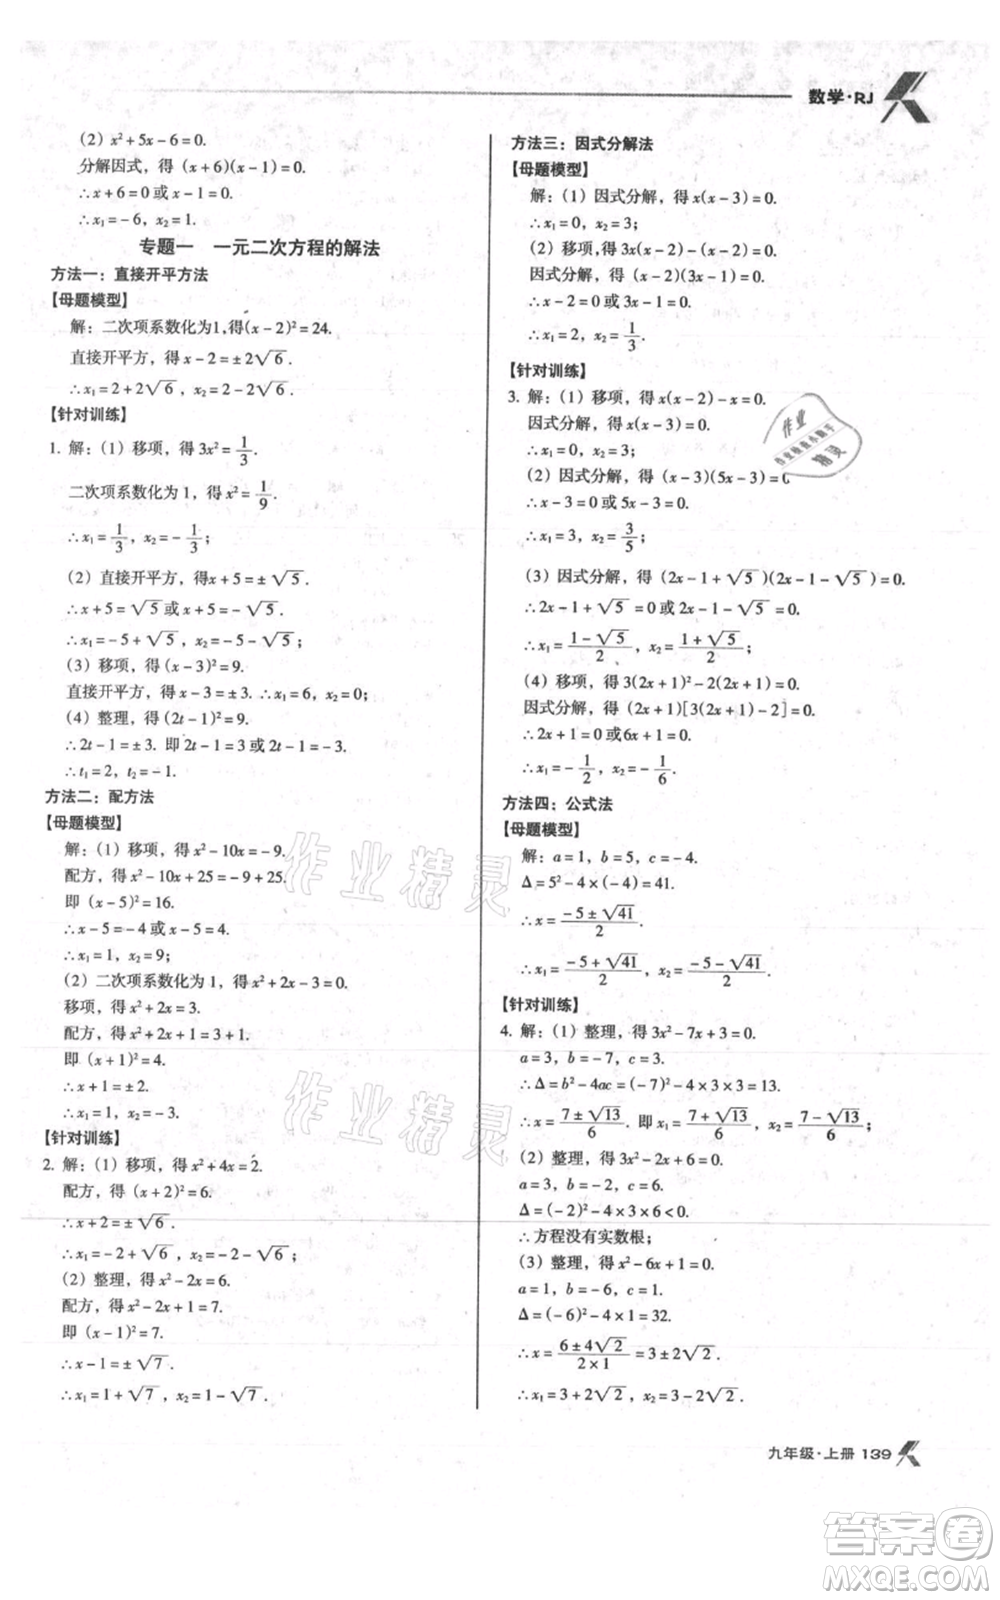 数学·RJ
(2) x²+5x-6=0.
分解因式，得 (x+6)(x-1)=0.
∴x+6=0 或 x-1=0.
∴x₁=-6, x₂=1.
专题一 一元二次方程的解法
方法一：直接开平方法
【母题模型】
解：二次项系数化为1,得(x-2)²=24.
直接开平方，得 x-2=±2√6.
∴x₁=2+2√6, x₂=2-2√6.
【针对训练】
1. 解：(1) 移项，得 3x²=1/3.
二次项系数化为 1，得 x²=1/9.
∴x₁=1/3, x₂=-1/3;
(2) 直接开平方，得 x+5=±√5.
∴x+5=√5 或 x+5=-√5.
∴x₁=-5+√5, x₂=-5-√5;
(3) 移项，得 (x-3)²=9.
直接开平方，得 x-3=±3. ∴x₁=6, x₂=0;
(4) 整理，得 (2t-1)²=9.
∴2t-1=±3. 即 2t-1=3 或 2t-1=-3.
∴t₁=2, t₂=-1.
方法二：配方法
【母题模型】
解：(1) 移项，得 x²-10x=-9.
配方，得 x²-10x+25=-9+25.
即 (x-5)²=16.
∴x-5=-4 或 x-5=4.
∴x₁=1, x₂=9;
(2) 二次项系数化为 1，得 x²+2x-3=0.
移项，得 x²+2x=3.
配方，得 x²+2x+1=3+1.
即 (x+1)²=4.
∴x+1=±2.
∴x₁=1, x₂=-3.
【针对训练】
2. 解：(1) 移项，得 x²+4x=2.
配方，得 (x+2)²=6.
∴x+2=±√6.
∴x₁=-2+√6, x₂=-2-√6;
(2) 整理，得 x²-2x=6.
配方，得 x²-2x+1=7.
即 (x-1)²=7.
∴x-1=±√7.
∴x₁=1+√7, x₂=1-√7.
方法三：因式分解法
【母题模型】
解：(1) 因式分解，得 x(x-3)=0.
∴x₁=0, x₂=3;
(2) 移项，得 3x(x-2)-(x-2)=0.
因式分解，得 (x-2)(3x-1)=0.
∴x-2=0 或 3x-1=0.
∴x₁=2, x₂=1/3.
【针对训练】
3. 解：(1) 移项，得 x(x-2)-x=0.
因式分解，得 x(x-3)=0.
∴x₁=0, x₂=3;
(2) 因式分解，得 (x-3)(5x-3)=0
∴x-3=0 或 5x-3=0.
∴x₁=3, x₂=3/5;
(3) 因式分解，得 (2x-1+√5)(2x-1-√5)=0.
∴2x-1+√5=0 或 2x-1-√5=0.
∴x₁=(1-√5)/2, x₂=(1+√5)/2;
(4) 移项，得 3(2x+1)²-2(2x+1)=0.
因式分解，得 (2x+1)[3(2x+1)-2]=0.
∴2x+1=0 或6x+1=0.
∴x₁=-1/2, x₂=-1/6.
方法四：公式法
【母题模型】
解：a=1, b=5, c=-4.
Δ=5²-4×(-4)=41.
∴x=(-5±√41)/2.
∴x₁=(-5+√41)/2, x₂=(-5-√41)/2.
【针对训练】
4. 解：(1) 整理，得 3x²-7x+3=0.
a=3, b=-7, c=3.
∴Δ=b²-4ac=(-7)²-4×3×3=13.
∴x=(7±√13)/6. 即 x₁=(7+√13)/6, x₂=(7-√13)/6;
(2) 整理，得 3x²-2x+6=0.
a=3, b=-2, c=6.
Δ=(-2)²-4×3×6<0.
∴方程没有实数根;
(3) 整理，得 x²-6x+1=0.
a=1, b=-6, c=1.
Δ=(-6)²-4×1×1=32.
∴x=(6±4√2)/(2×1)=3±2√2.
∴x₁=3+2√2, x₂=3-2√2.
九年级·上册 139
作业精灵
作业精灵
作业
精灵
答案卷
MXQE.COM